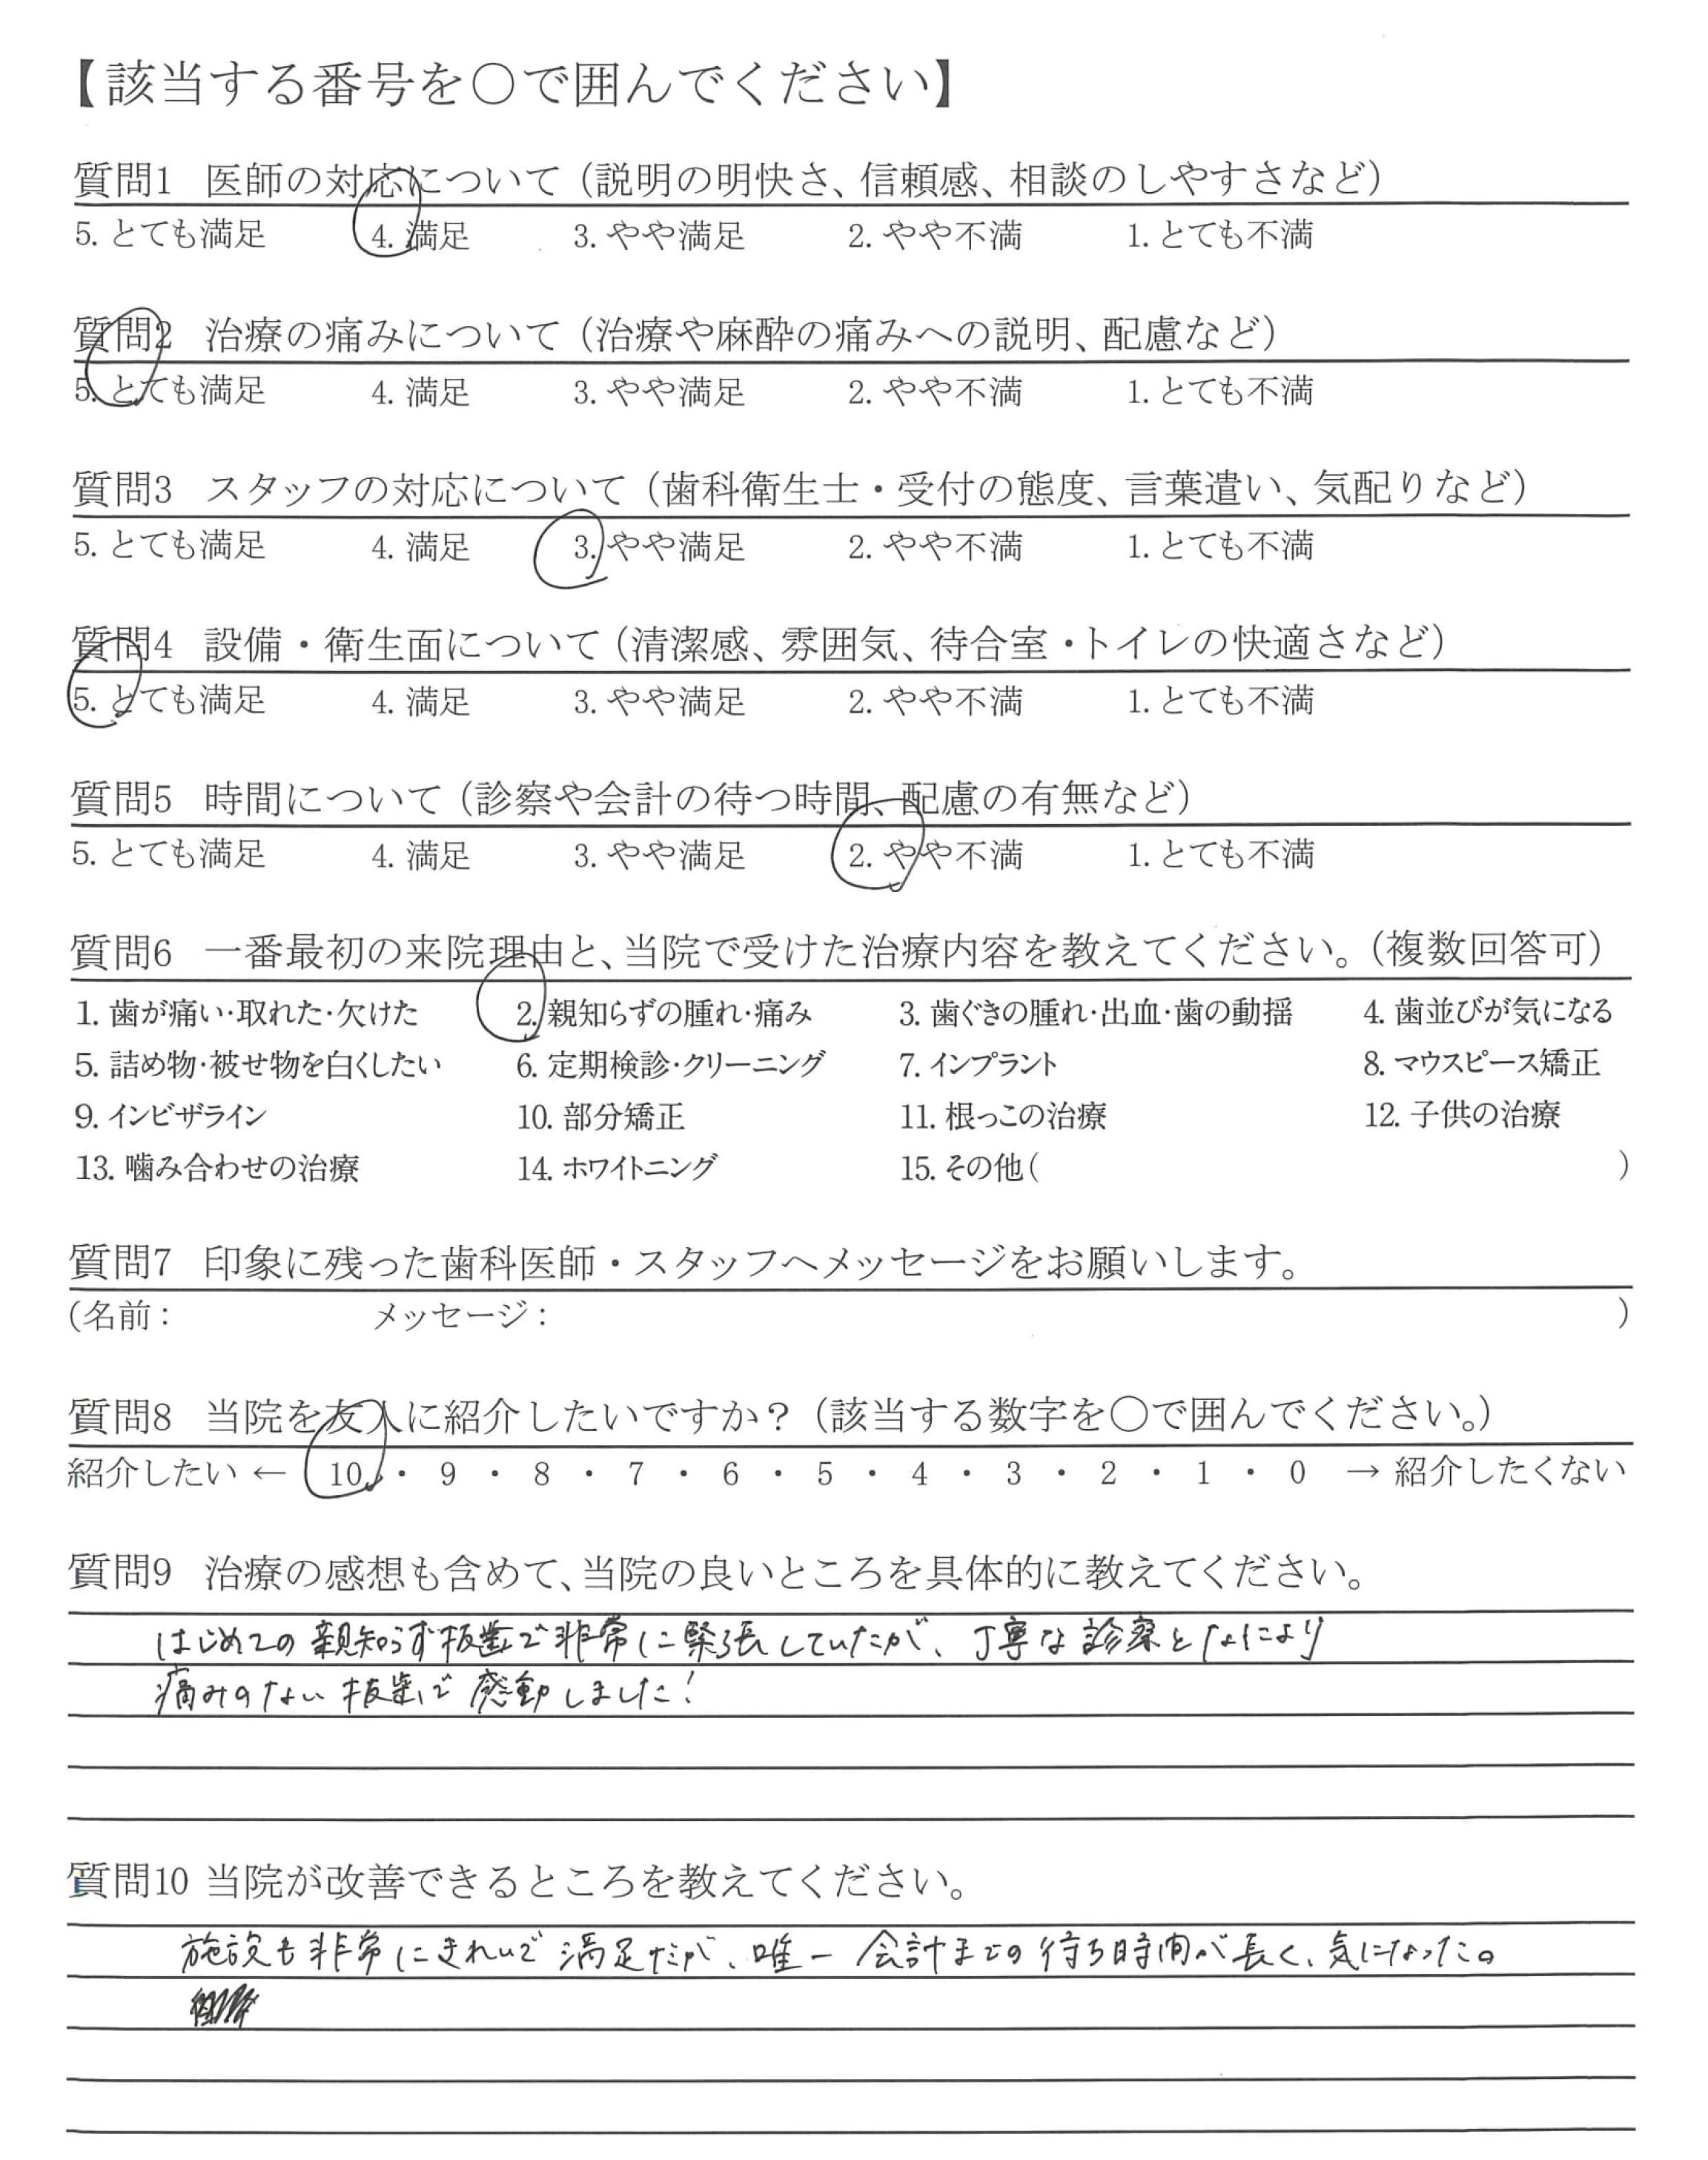 【該当する番号を○で囲んでください】
質問1 医師の対応について（説明の明快さ、信頼感、相談のしやすさなど）
5. とても満足 4. 満足 3. やや満足 2. やや不満 1. とても不満
質問2 治療の痛みについて（治療や麻酔の痛みへの説明、配慮など）
5. とても満足 4. 満足 3. やや満足 2. やや不満 1. とても不満
質問3 スタッフの対応について（歯科衛生士・受付の態度、言葉遣い、気配りなど）
5. とても満足 4. 満足 3. やや満足 2. やや不満 1. とても不満
質問4 設備・衛生面について（清潔感、雰囲気、待合室・トイレの快適さなど）
5. とても満足 4. 満足 3. やや満足 2. やや不満 1. とても不満
質問5 時間について（診察や会計の待つ時間、配慮の有無など）
5. とても満足 4. 満足 3. やや満足 2. やや不満 1. とても不満
質問6 一番最初の来院理由と、当院で受けた治療内容を教えてください。（複数回答可）
1. 歯が痛い・取れた・欠けた 2. 親知らずの腫れ・痛み 3. 歯ぐきの腫れ・出血・歯の動揺 4. 歯並びが気になる
5. 詰め物・被せ物を白くしたい 6. 定期検診・クリーニング 7. インプラント 8. マウスピース矯正
9. インビザライン 10. 部分矯正 11. 根っこの治療 12. 子供の治療
13. 噛み合わせの治療 14. ホワイトニング 15. その他( )
質問7 印象に残った歯科医師・スタッフへメッセージをお願いします。
(名前： メッセージ： )
質問8 当院を友人に紹介したいですか？（該当する数字を○で囲んでください。）
紹介したい ← 10 ・ 9 ・ 8 ・ 7 ・ 6 ・ 5 ・ 4 ・ 3 ・ 2 ・ 1 ・ 0 → 紹介したくない
質問9 治療の感想も含めて、当院の良いところを具体的に教えてください。
はじめての親知らず抜歯で非常に緊張していたが、丁寧な診察となにより
痛みのない抜歯で感動しました！
質問10 当院が改善できるところを教えてください。
施設も非常にきれいで満足だが、唯一会計までの待ち時間が長く、気になった。